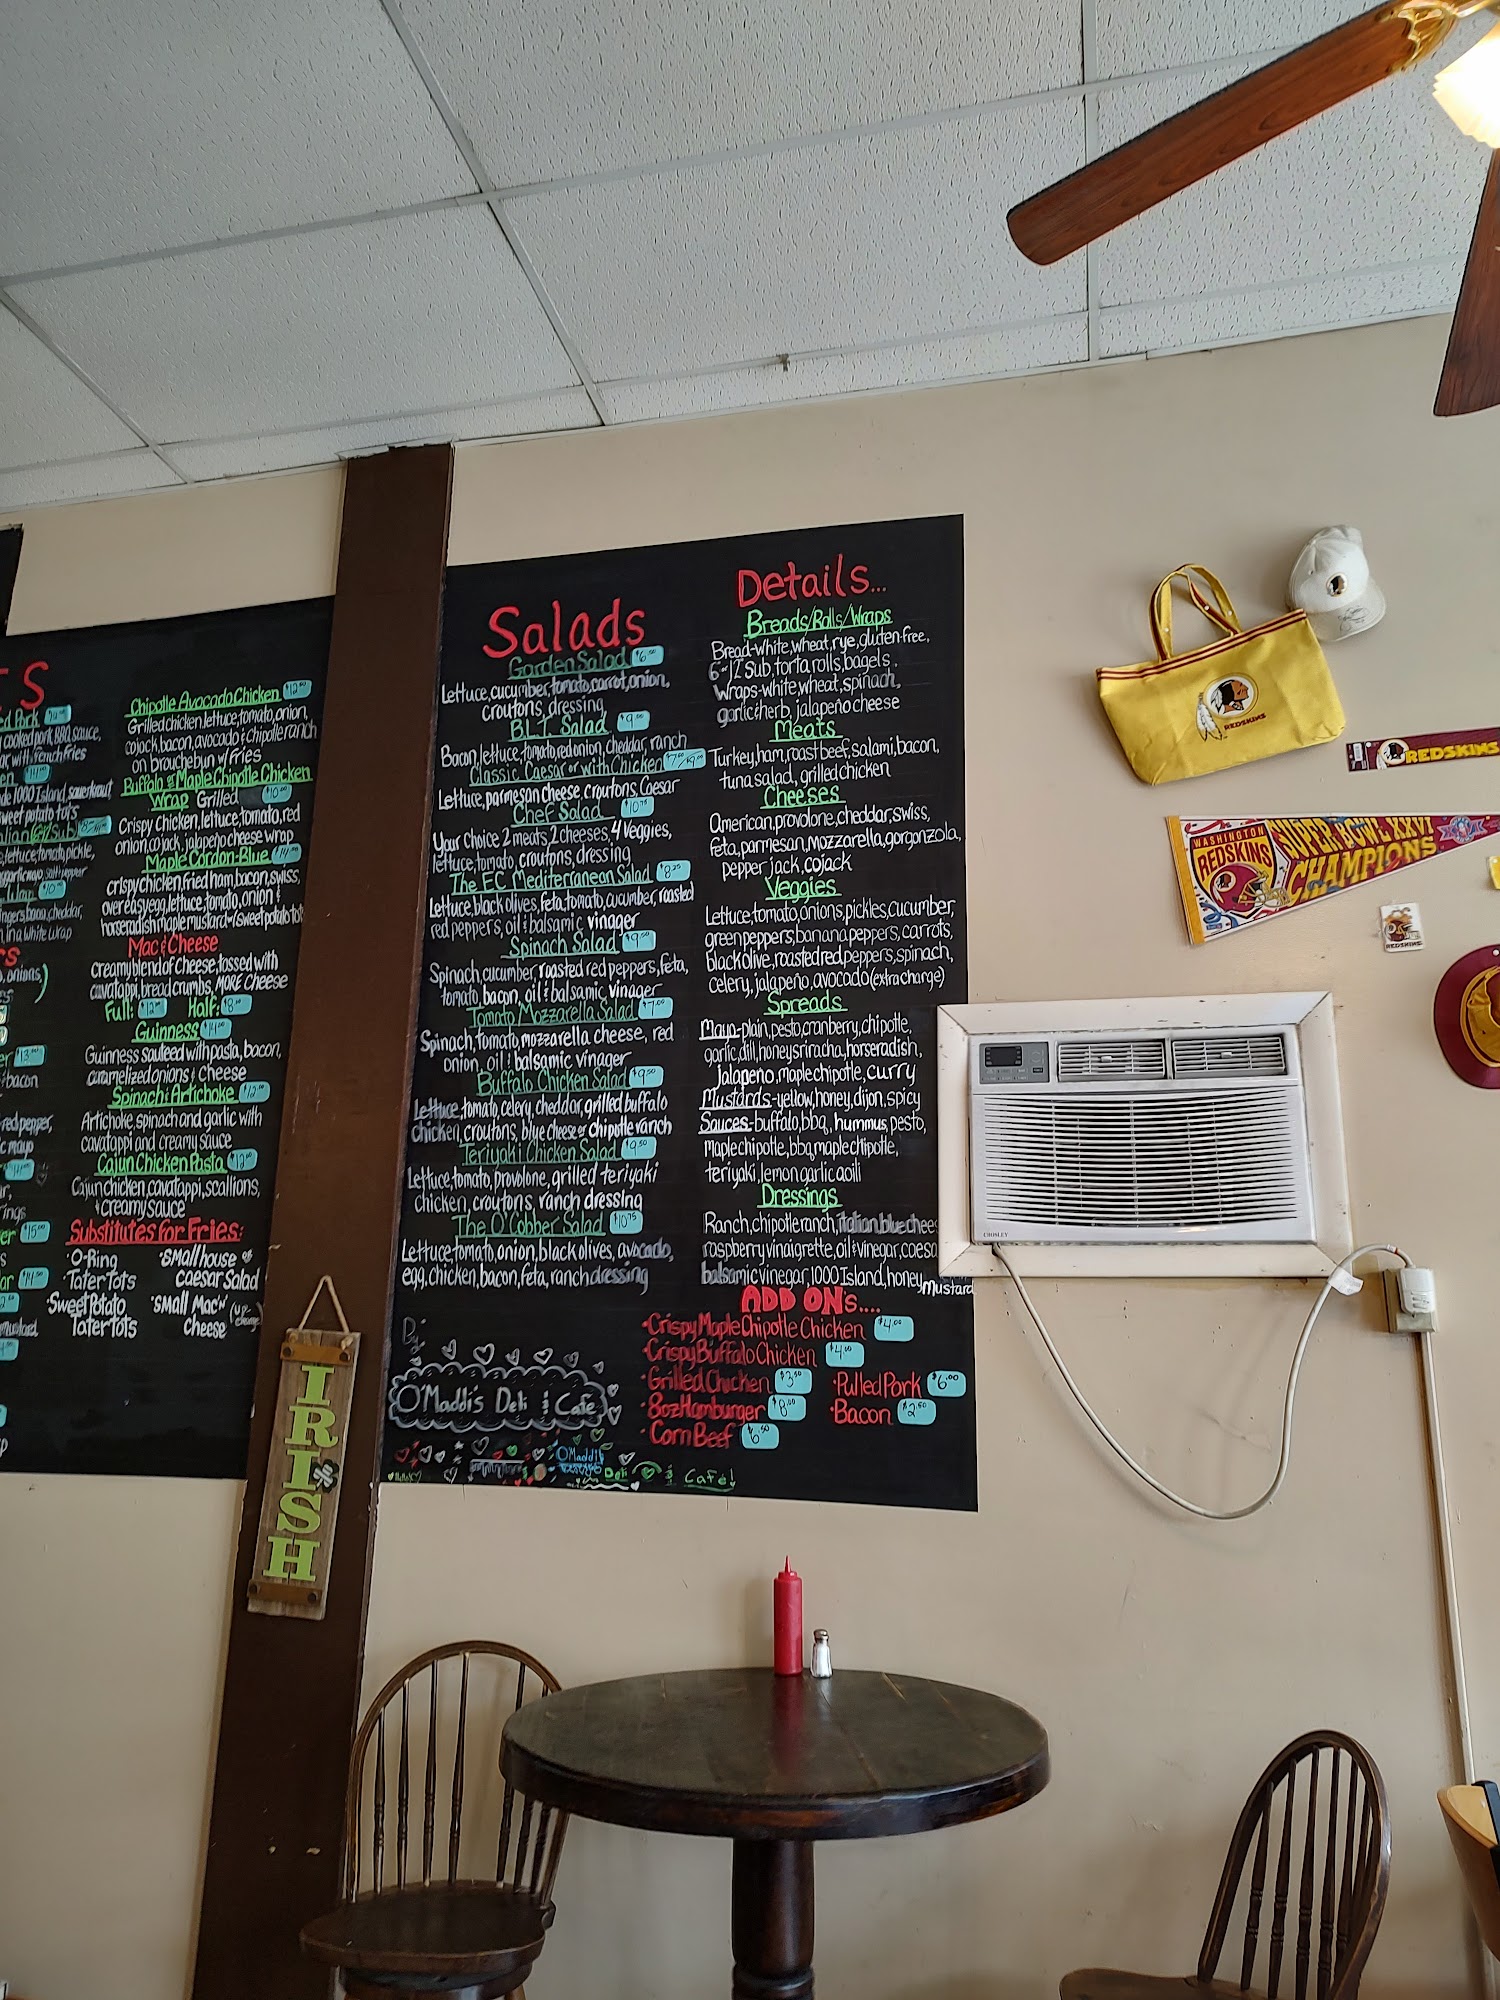 S
ed Pork
cooked pork, BBQ sauce,
Chipotle Avocado Chicken $12.00
Grilled chicken, lettuce, tomato, onion,
cojack, bacon, avocado & chipotle ranch
on brouchebun w/ fries
Buffalo or Maple Chipotle Chicken
Wrap Grilled $10.00
Crispy chicken, lettuce, tomato, red
onion, cojack, jalapeño cheese wrap
Maple Cordon-Blue
crispy chicken, fried ham, bacon, swiss,
over easy egg, lettuce, tomato, onion &
horseradish maple mustard w/ sweet potato tot
Mac & Cheese
creamy blend of cheese, tossed with
cavatappi, bread crumbs, MORE cheese
Full: $12.00 Half: $8.00
Guinness $14.00
Guinness sauteed with pasta, bacon,
caramelized onions & cheese
Spinach & Artichoke $12.00
Artichoke, spinach and garlic with
cavatappi and creamy sauce
Cajun Chicken Pasta $12.00
Cajun chicken, cavatappi, scallions,
& creamy sauce
Substitutes for Fries:
·O-Ring
·Tater Tots
·Sweet Potato
Tater Tots
·Small house or
caesar Salad
·Small Mac 'n'
cheese (up-charge)
IRISH
Salads
Garden Salad $6.00
Lettuce, cucumber, tomato, carrot, onion,
croutons, dressing
B.L.T. Salad $9.00
Bacon, lettuce, tomato, red onion, cheddar, ranch
Classic Caesar or with Chicken
Lettuce, parmesan cheese, croutons, Caesar
Chef Salad $10.75
Your choice 2 meats, 2 cheeses, 4 Veggies,
lettuce, tomato, croutons, dressing
The EC Mediterranean Salad $8.25
Lettuce, black olives, feta, tomato, cucumber, roasted
red peppers, oil & balsamic vinager
Spinach Salad $9.50
Spinach, cucumber, roasted red peppers, feta,
tomato, bacon, oil & balsamic vinager
Tomato Mozzarella Salad $7.00
Spinach, tomato, mozzarella cheese, red
onion, oil & balsamic vinager
Buffalo Chicken Salad $9.50
Lettuce, tomato, celery, cheddar, grilled buffalo
chicken, croutons, blue cheese or chipotle ranch
Teriyaki Chicken Salad $9.50
Lettuce, tomato, provolone, grilled teriyaki
chicken, croutons, ranch dressing
The O'Cobber Salad $10.75
Lettuce, tomato, onion, black olives, avocado,
egg, chicken, bacon, feta, ranch dressing
By:
O'Maddi's Deli & Cafe
O'Maddi's
Deli & Cafe!
Details...
Breads/Rolls/Wraps
Bread-white, wheat, rye, gluten-free,
6" or 12" Sub, torta rolls, bagels,
Wraps-white, wheat, spinach,
garlic & herb, jalapeño cheese
Meats
Turkey, ham, roast beef, salami, bacon,
tuna salad, grilled chicken
Cheeses
American, provolone, cheddar, swiss,
feta, parmesan, mozzarella, gorgonzola,
pepper jack, cojack
Veggies
Lettuce, tomato, onions, pickles, cucumber,
green peppers, banana peppers, carrots,
black olive, roasted red peppers, spinach,
celery, jalapeño, avocado (extra charge)
Spreads
Mayo-plain, pesto, cranberry, chipotle,
garlic, dill, honey sriracha, horseradish,
jalapeno, maple chipotle, curry
Mustards-yellow, honey, dijon, spicy
Sauces-buffalo, bbq, hummus, pesto,
maple chipotle, bbq maple chipotle,
teriyaki, lemon garlic aoili
Dressings
Ranch, chipotle ranch, italian, blue chees
raspberry vinaigrette, oil & vinegar, caesa
balsamic vinegar, 1000 Island, honey mustard
ADD ON's....
·Crispy Maple Chipotle Chicken $4.00
·Crispy Buffalo Chicken $4.00
·Grilled Chicken $3.50
·8oz Hamburger $8.00
·Corn Beef $6.50
·Pulled Pork $6.00
·Bacon $2.50
CROSLEY
REDSKINS
REDSKINS
WASHINGTON
REDSKINS
SUPER BOWL XXVI
CHAMPIONS
REDSKINS